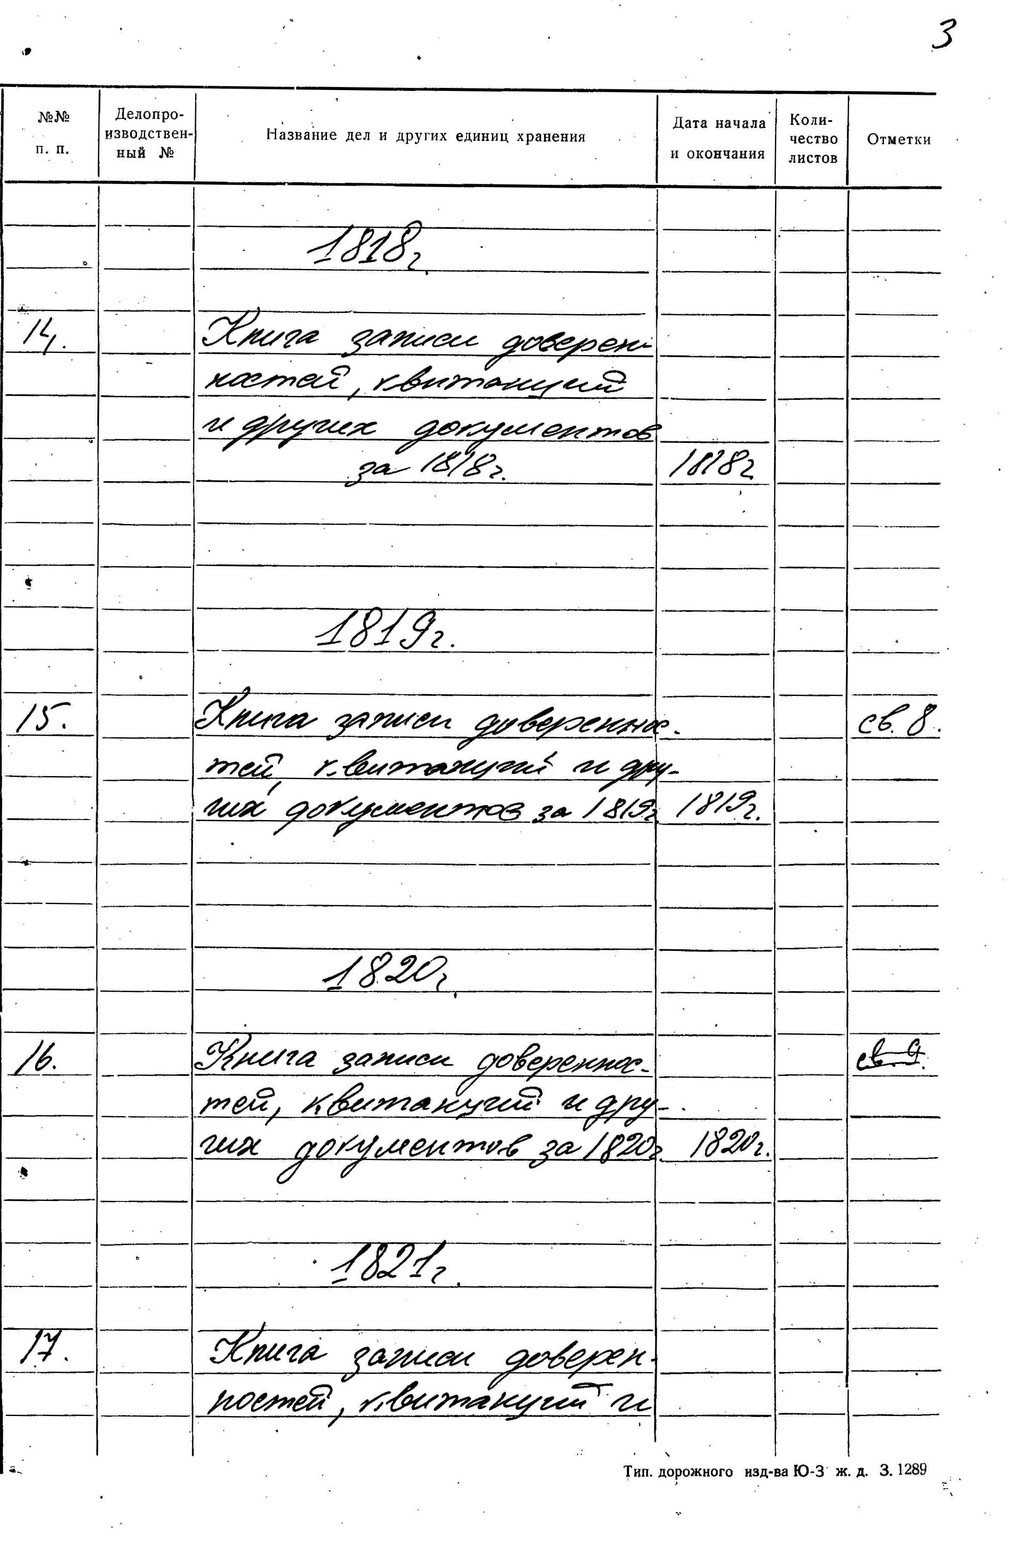 3
№№ п. п.
Делопро-
изводствен-
ный №
Название дел и других единиц хранения
Дата начала
и окончания
Коли-
чество
листов
Отметки
1818г.
14. Книга записи доверен-
ностей, квитанций
и других документов
за 1818г. 1818г.
1819г.
15. Книга записи довереннос- св. 8.
тей, квитанций и дру-
гих документов за 1819г. 1819г.
1820г.
16. Книга записи довереннос- св. 9.
тей, квитанций и дру-
гих документов за 1820г. 1820г.
1821г.
17. Книга записи доверен-
ностей, квитанций и
Тип. дорожного изд-ва Ю-З ж. д. З. 1289